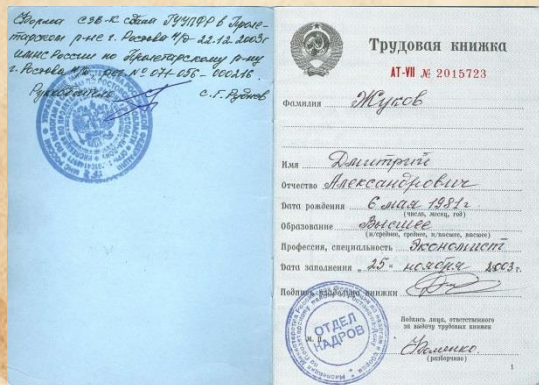 Форма СЗВ-К сдана ГУУПФР в Проле-
тарском р-не г. Ростова н/Д 22.12.2003г
ИМНС России по Пролетарскому р-ну
г. Ростова н/Д рег № 071-056-000216.
Руководитель С.Г. Руднов
Трудовая книжка
АТ-VII № 2015723
Фамилия Жуков
Имя Дмитрий
Отчество Александрович
Дата рождения 6 мая 1981г.
(число, месяц, год)
Образование Высшее
(н/среднее, среднее, н/высшее, высшее)
Профессия, специальность Экономист
Дата заполнения „25" ноября 2003 г.
Подпись владельца книжки
ОТДЕЛ
КАДРОВ
М. П.
Подпись лица, ответственного
за выдачу трудовых книжек
(разборчиво)
1